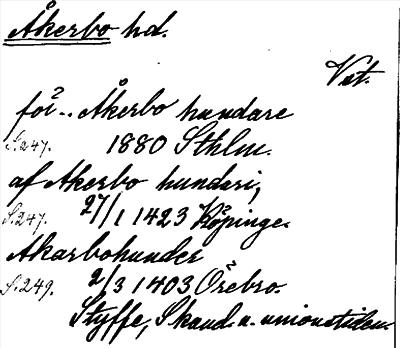 Åkerbo hd.
Vst.
för.. Åkerbo hundare
S.247. 1880 Sthlm.
af Akerbo hunderi,
S.247. 27/1 1423 Köpinge.
Akarbohunder
S.249. 2/3 1403 Örebro.
Styffe, Skand. u. unionstiden.